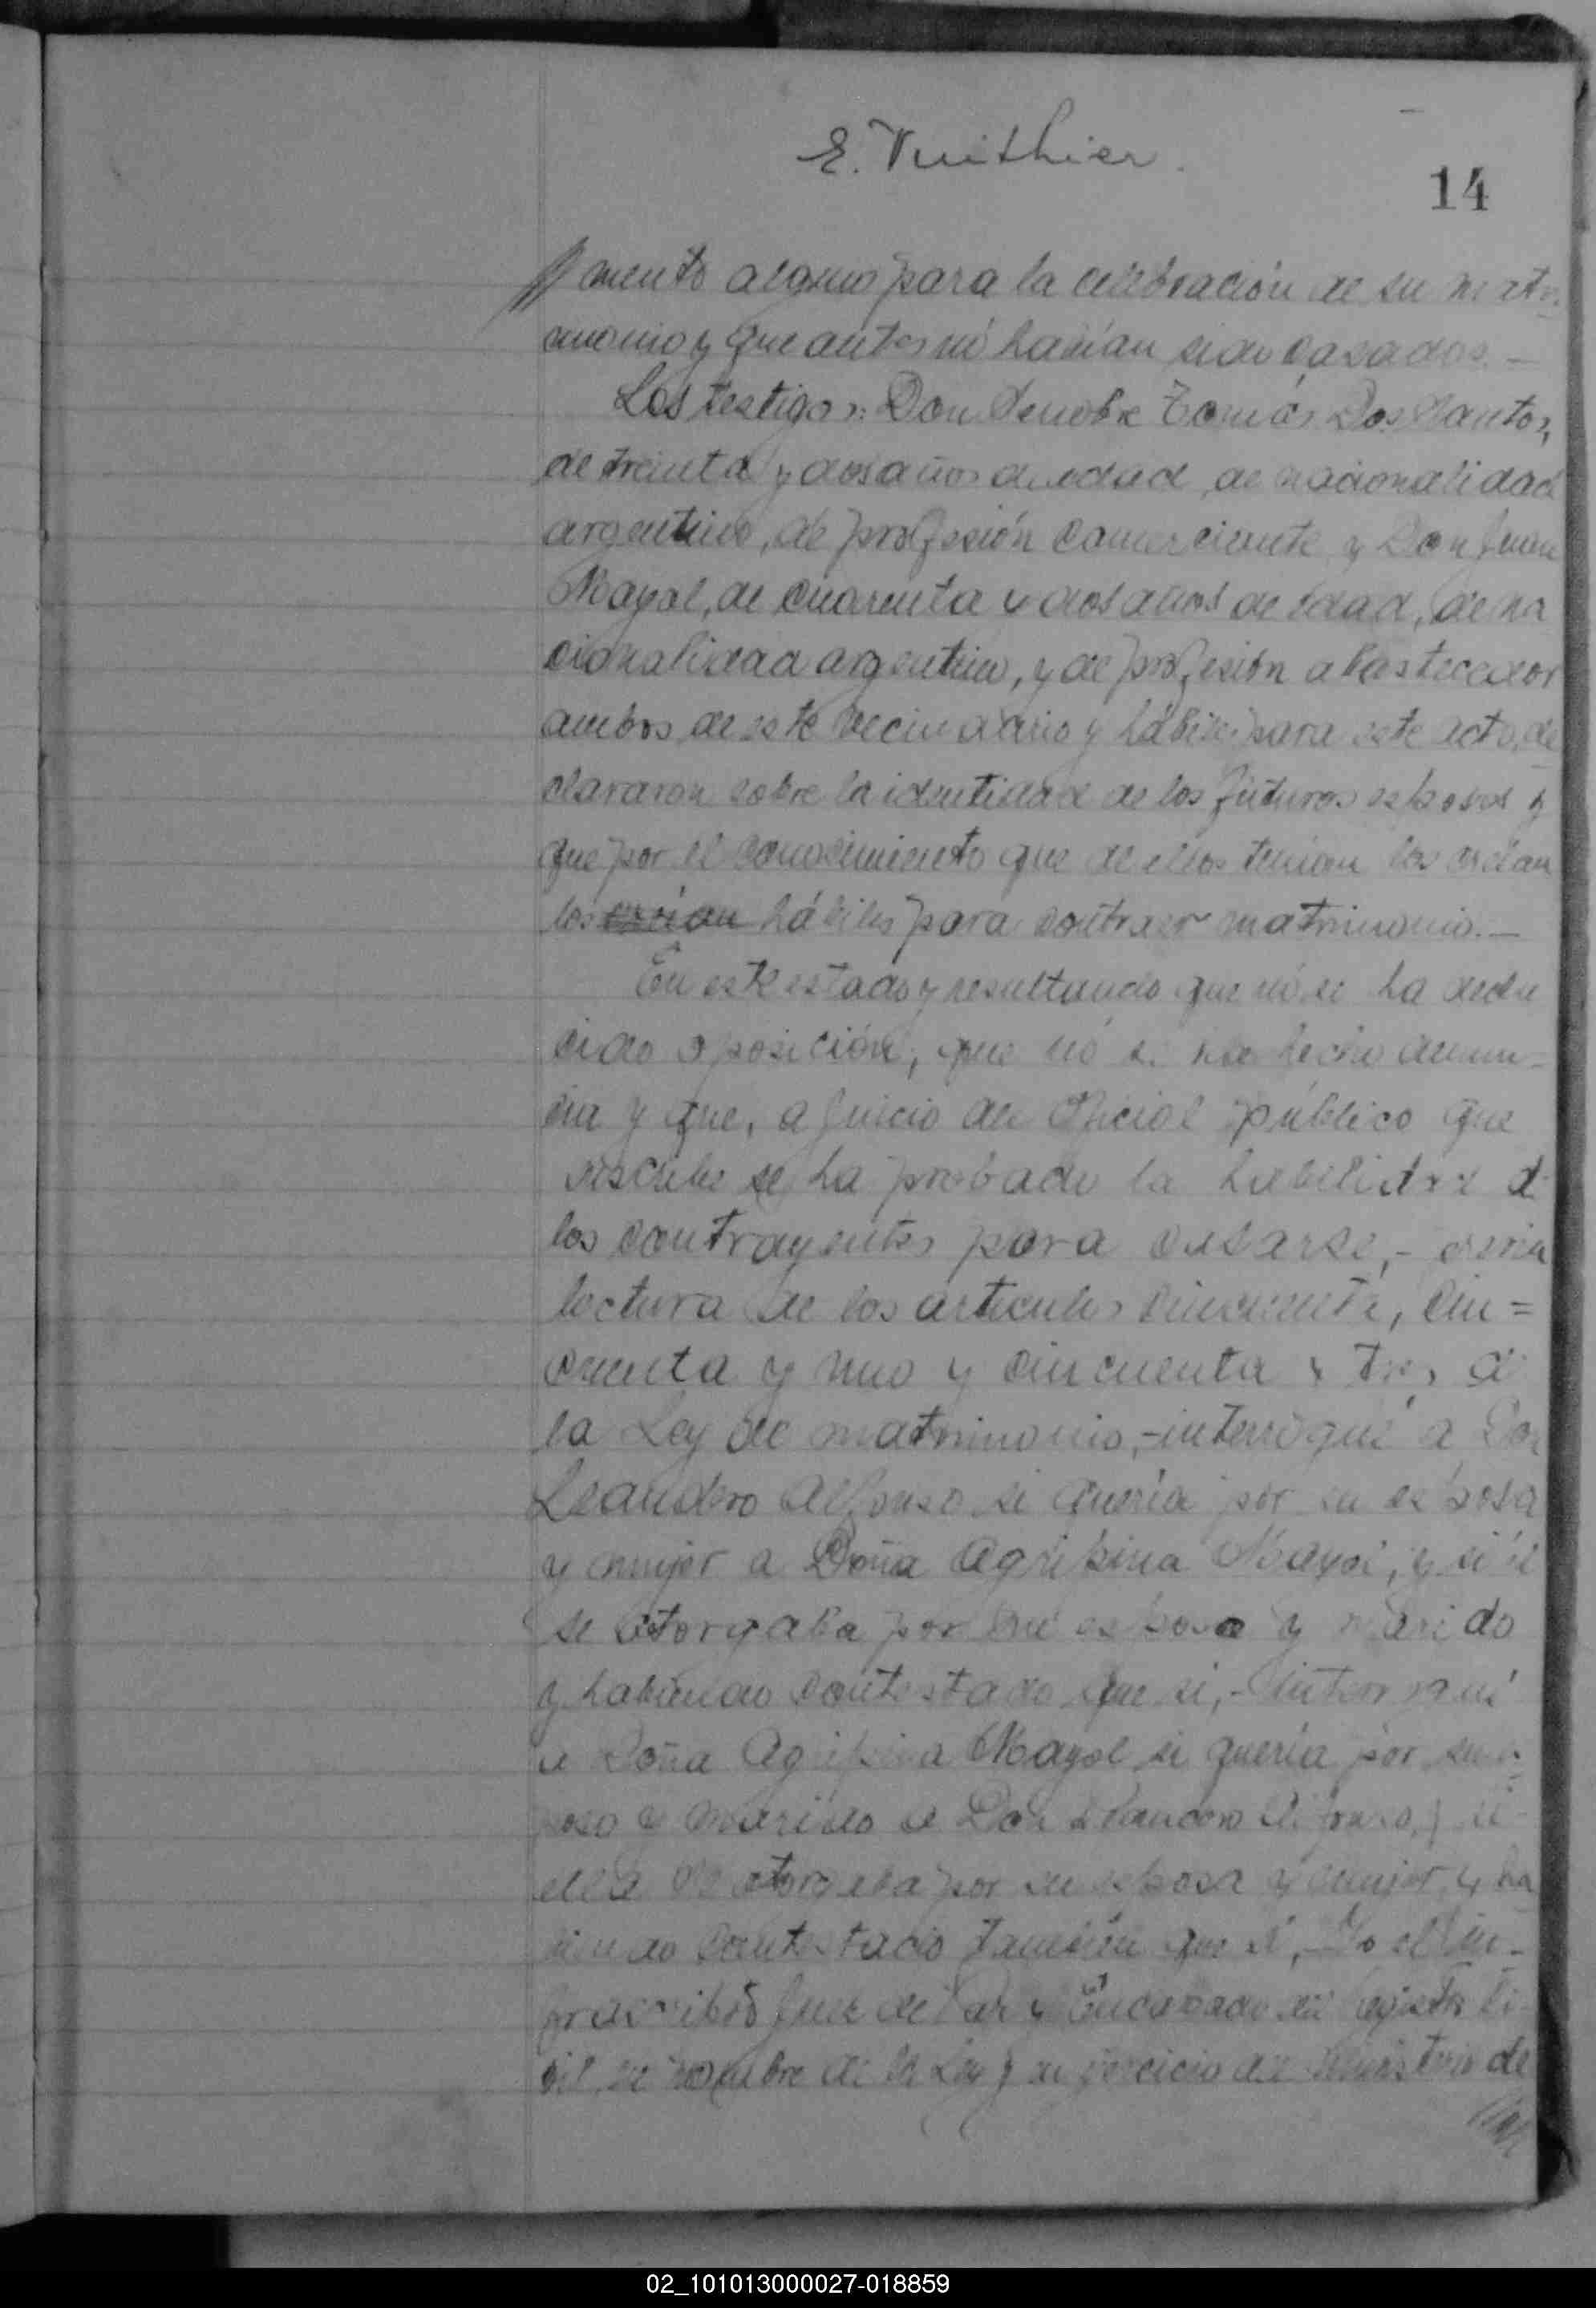 E. Vuithier.
14
mento alguno para la celebración de su matri
monio y que antes nó habían sido casados. —
Los testigos: Don Tomás Dos Santos,
de treinta y dos años de edad, de nacionalidad
argentino, de profesión comerciante y Don Juan
Mayol, de cuarenta y dos años de edad, de na
cionalidad argentino, y de profesión abastecedor
ambos de este vecindario y hábiles para este acto, de
clararon sobre la identidad de los futuros esposos y
que por el conocimiento que de ellos tenían los creían
los creian hábiles para contraer matrimonio. —
En este estado y resultando que nó se ha dedu
cido oposición, que nó se ha hecho denun-
cia y que, a juicio del Oficial público que
suscribe se ha probado la habilidad d
los contrayentes para casarse, - previa
lectura de los artículos cincuenta, cin=
cuenta y uno y cincuenta y tres d
la Ley de matrimonio, - interrogué a Don
Leandro Alfonso si quería por su esposa
y mujer a Doña Agripina Mayol, y si él
se otorgaba por su esposo y marido
y habiendo contestado que sí, - interrogué
a Doña Agripina Mayol si quería por su es=
poso y marido a Don Leandro Alfonso, y si
ella se otorgaba por su esposa y mujer y ha
biendo contestado también que sí, - Yo el in-
frascribto Juez de Paz y Encargado del Registro Ci-
vil, en nombre de la Ley y en ejercicio del ministerio de